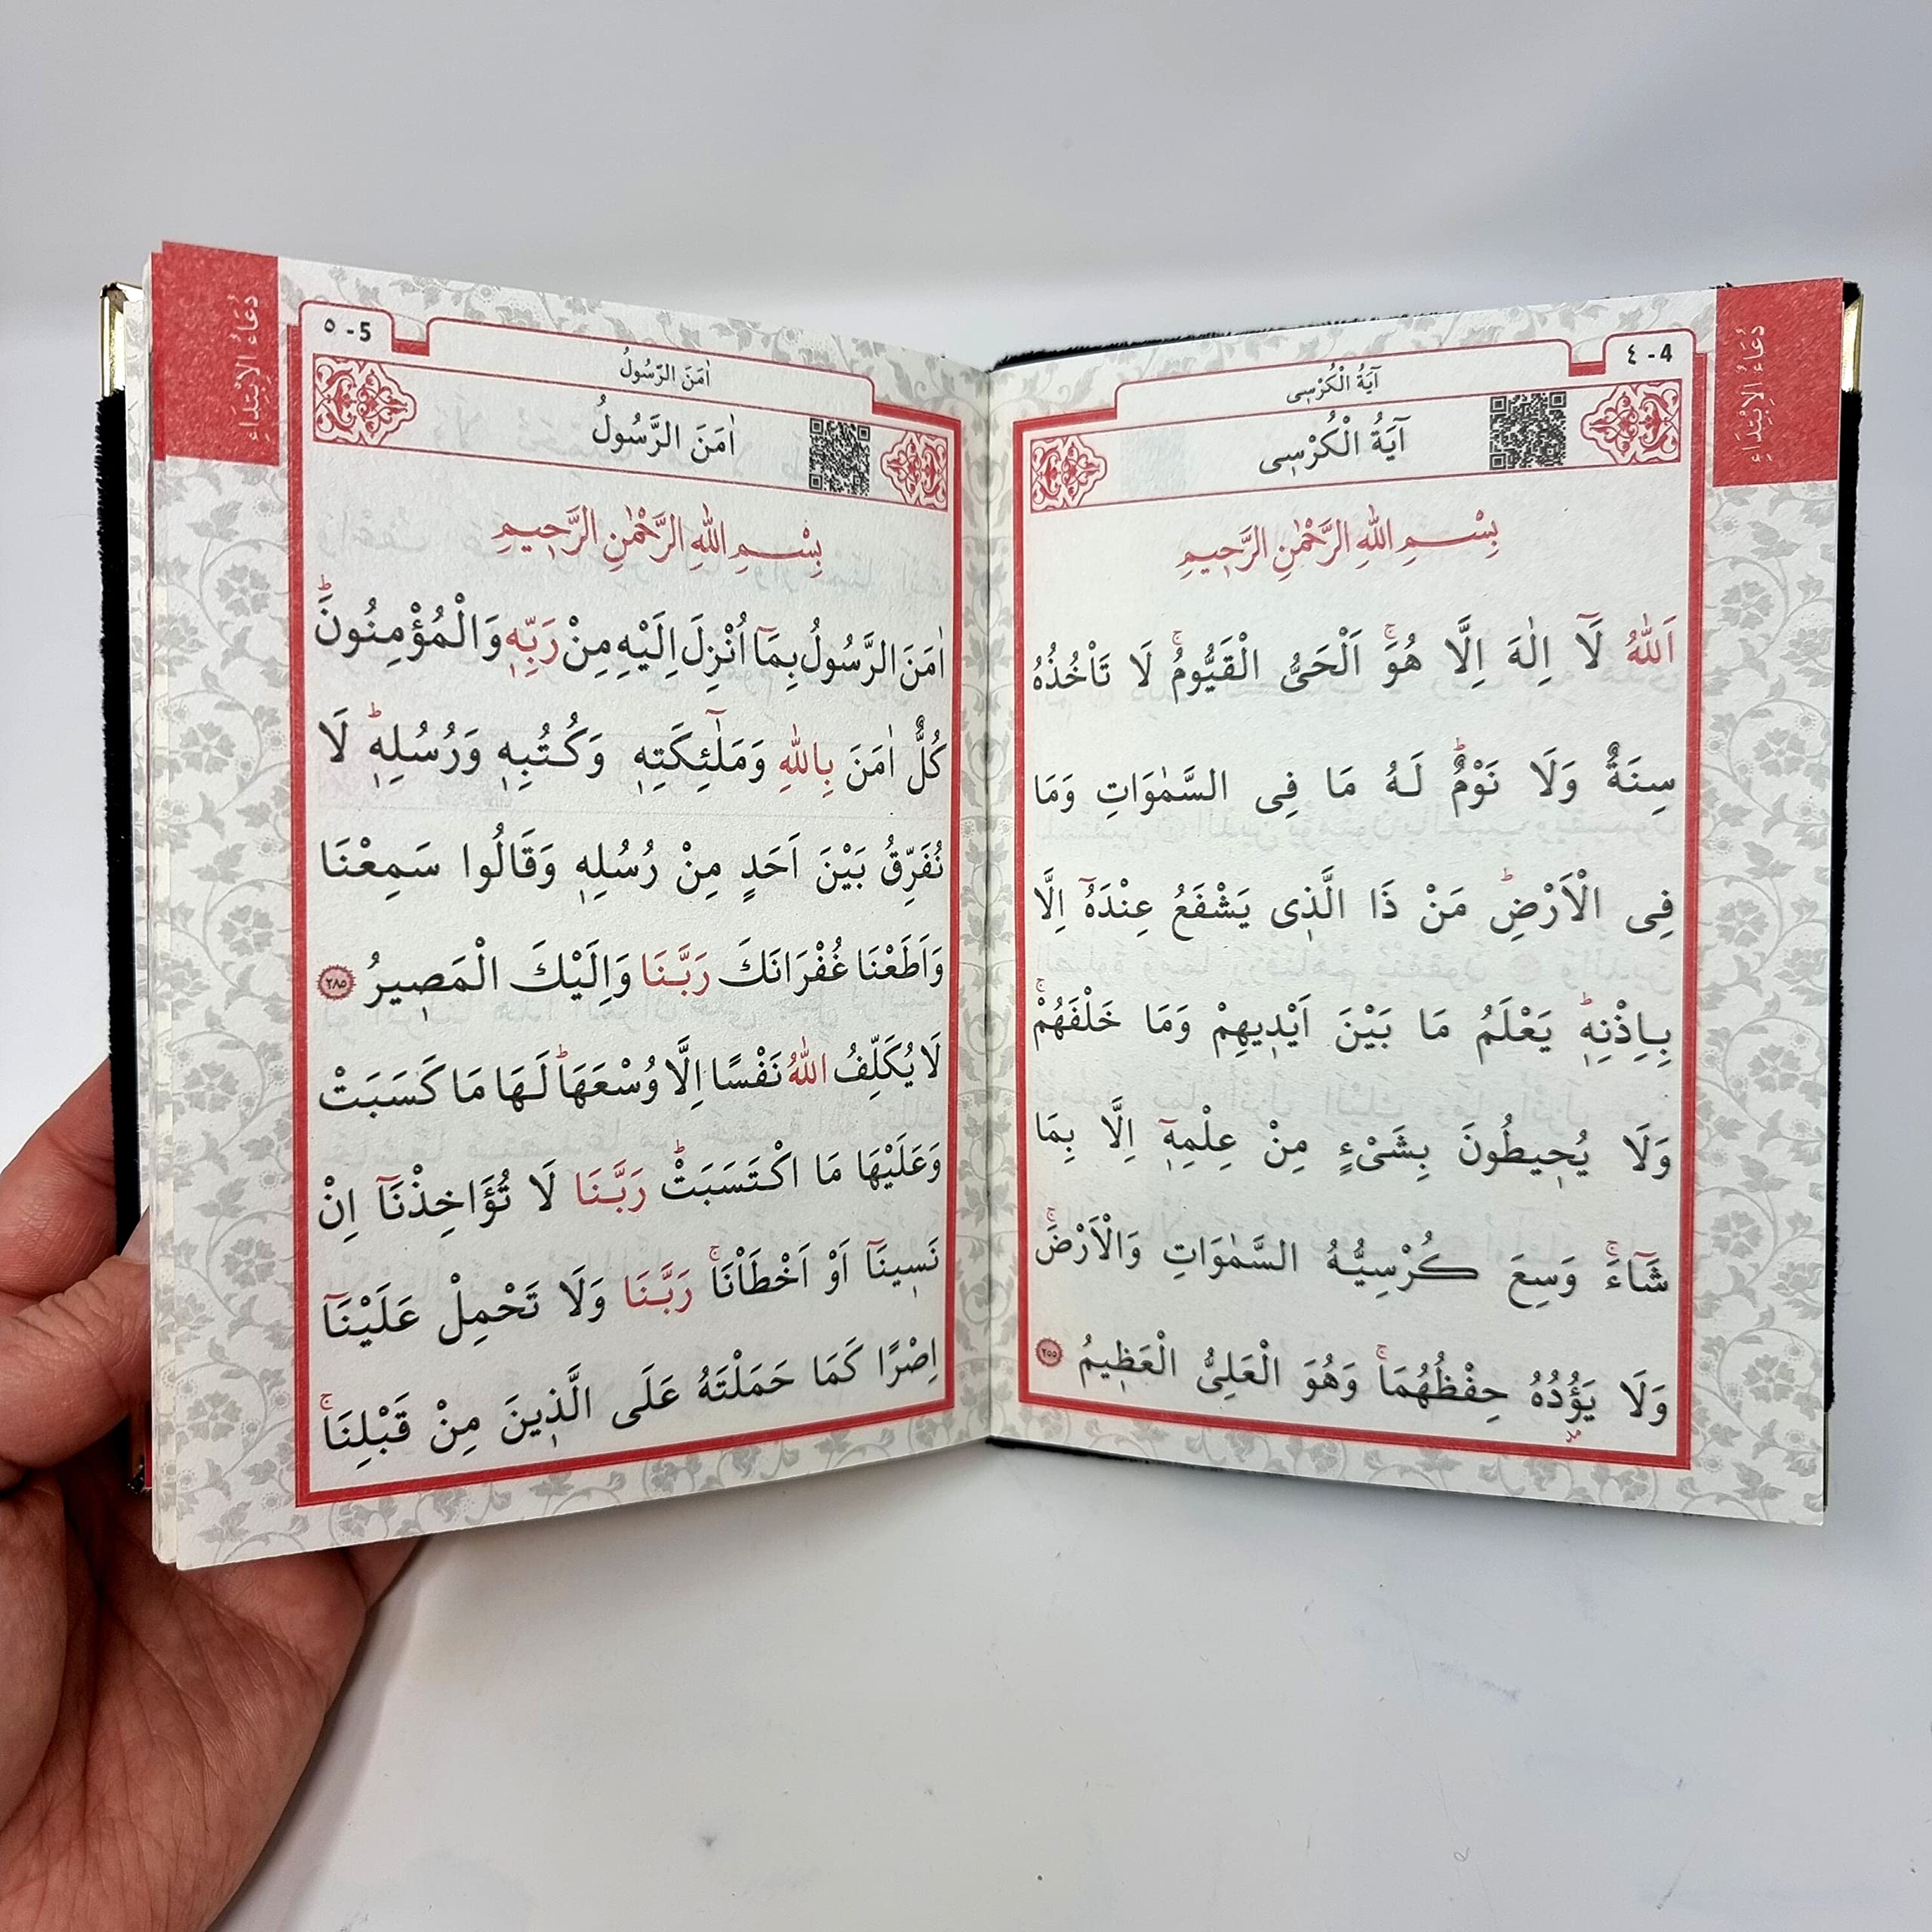 دُعَاءُ الْاِبْتِدَاءِ
٤ - 4
آيَةُ الْكُرْسِى
آيَةُ الْكُرْسِى
بِسْمِ اللهِ الرَّحْمٰنِ الرَّحِيمِ
اَللهُ لَآ اِلٰهَ اِلَّا هُوَۚ اَلْحَىُّ الْقَيُّومُۚ لَا تَاْخُذُهُ
سِنَةٌ وَلَا نَوْمٌؕ لَهُ مَا فِى السَّمٰوَاتِ وَمَا
فِى الْاَرْضِؕ مَنْ ذَا الَّذِى يَشْفَعُ عِنْدَهُٓ اِلَّا
بِاِذْنِهٖؕ يَعْلَمُ مَا بَيْنَ اَيْدِيهِمْ وَمَا خَلْفَهُمْۚ
وَلَا يُحِيطُونَ بِشَىْءٍ مِنْ عِلْمِهٖٓ اِلَّا بِمَا
شَآءَۚ وَسِعَ كُرْسِيُّهُ السَّمٰوَاتِ وَالْاَرْضَۚ
وَلَا يَؤُدُهُ حِفْظُهُمَاۚ وَهُوَ الْعَلِىُّ الْعَظِيمُ ٢٥٥
مد
دُعَاءُ الْاِبْتِدَاءِ
٥ - 5
اٰمَنَ الرَّسُولُ
اٰمَنَ الرَّسُولُ
بِسْمِ اللهِ الرَّحْمٰنِ الرَّحِيمِ
اٰمَنَ الرَّسُولُ بِمَآ اُنْزِلَ اِلَيْهِ مِنْ رَبِّهٖ وَالْمُؤْمِنُونَؕ
كُلٌّ اٰمَنَ بِاللهِ وَمَلٰٓئِكَتِهٖ وَكُتُبِهٖ وَرُسُلِهٖؕ لَا
نُفَرِّقُ بَيْنَ اَحَدٍ مِنْ رُسُلِهٖ وَقَالُوا سَمِعْنَا
وَاَطَعْنَا غُفْرَانَكَ رَبَّنَا وَاِلَيْكَ الْمَصِيرُ ٢٨٥
لَا يُكَلِّفُ اللهُ نَفْسًا اِلَّا وُسْعَهَاؕ لَهَا مَا كَسَبَتْ
وَعَلَيْهَا مَا اكْتَسَبَتْؕ رَبَّنَا لَا تُؤَاخِذْنَآ اِنْ
نَسِينَآ اَوْ اَخْطَاْنَاۚ رَبَّنَا وَلَا تَحْمِلْ عَلَيْنَآ
اِصْرًا كَمَا حَمَلْتَهُ عَلَى الَّذِينَ مِنْ قَبْلِنَاۚ